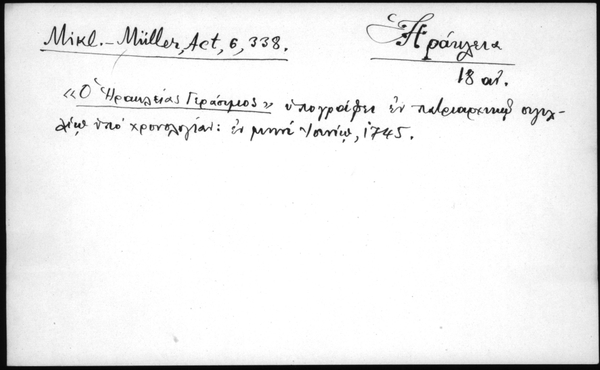 Mikl.-Müller, Act, 6, 338.
Ἡράκλεια
18 αἰ.
«Ὁ Ἡρακλείας Γεράσιμος» ὑπογράφει ἐν πατριαρχικῷ σιγιλ-
λίῳ ὑπὸ χρονολογίαν: ἐν μηνὶ Ἰουνίῳ, 1745.